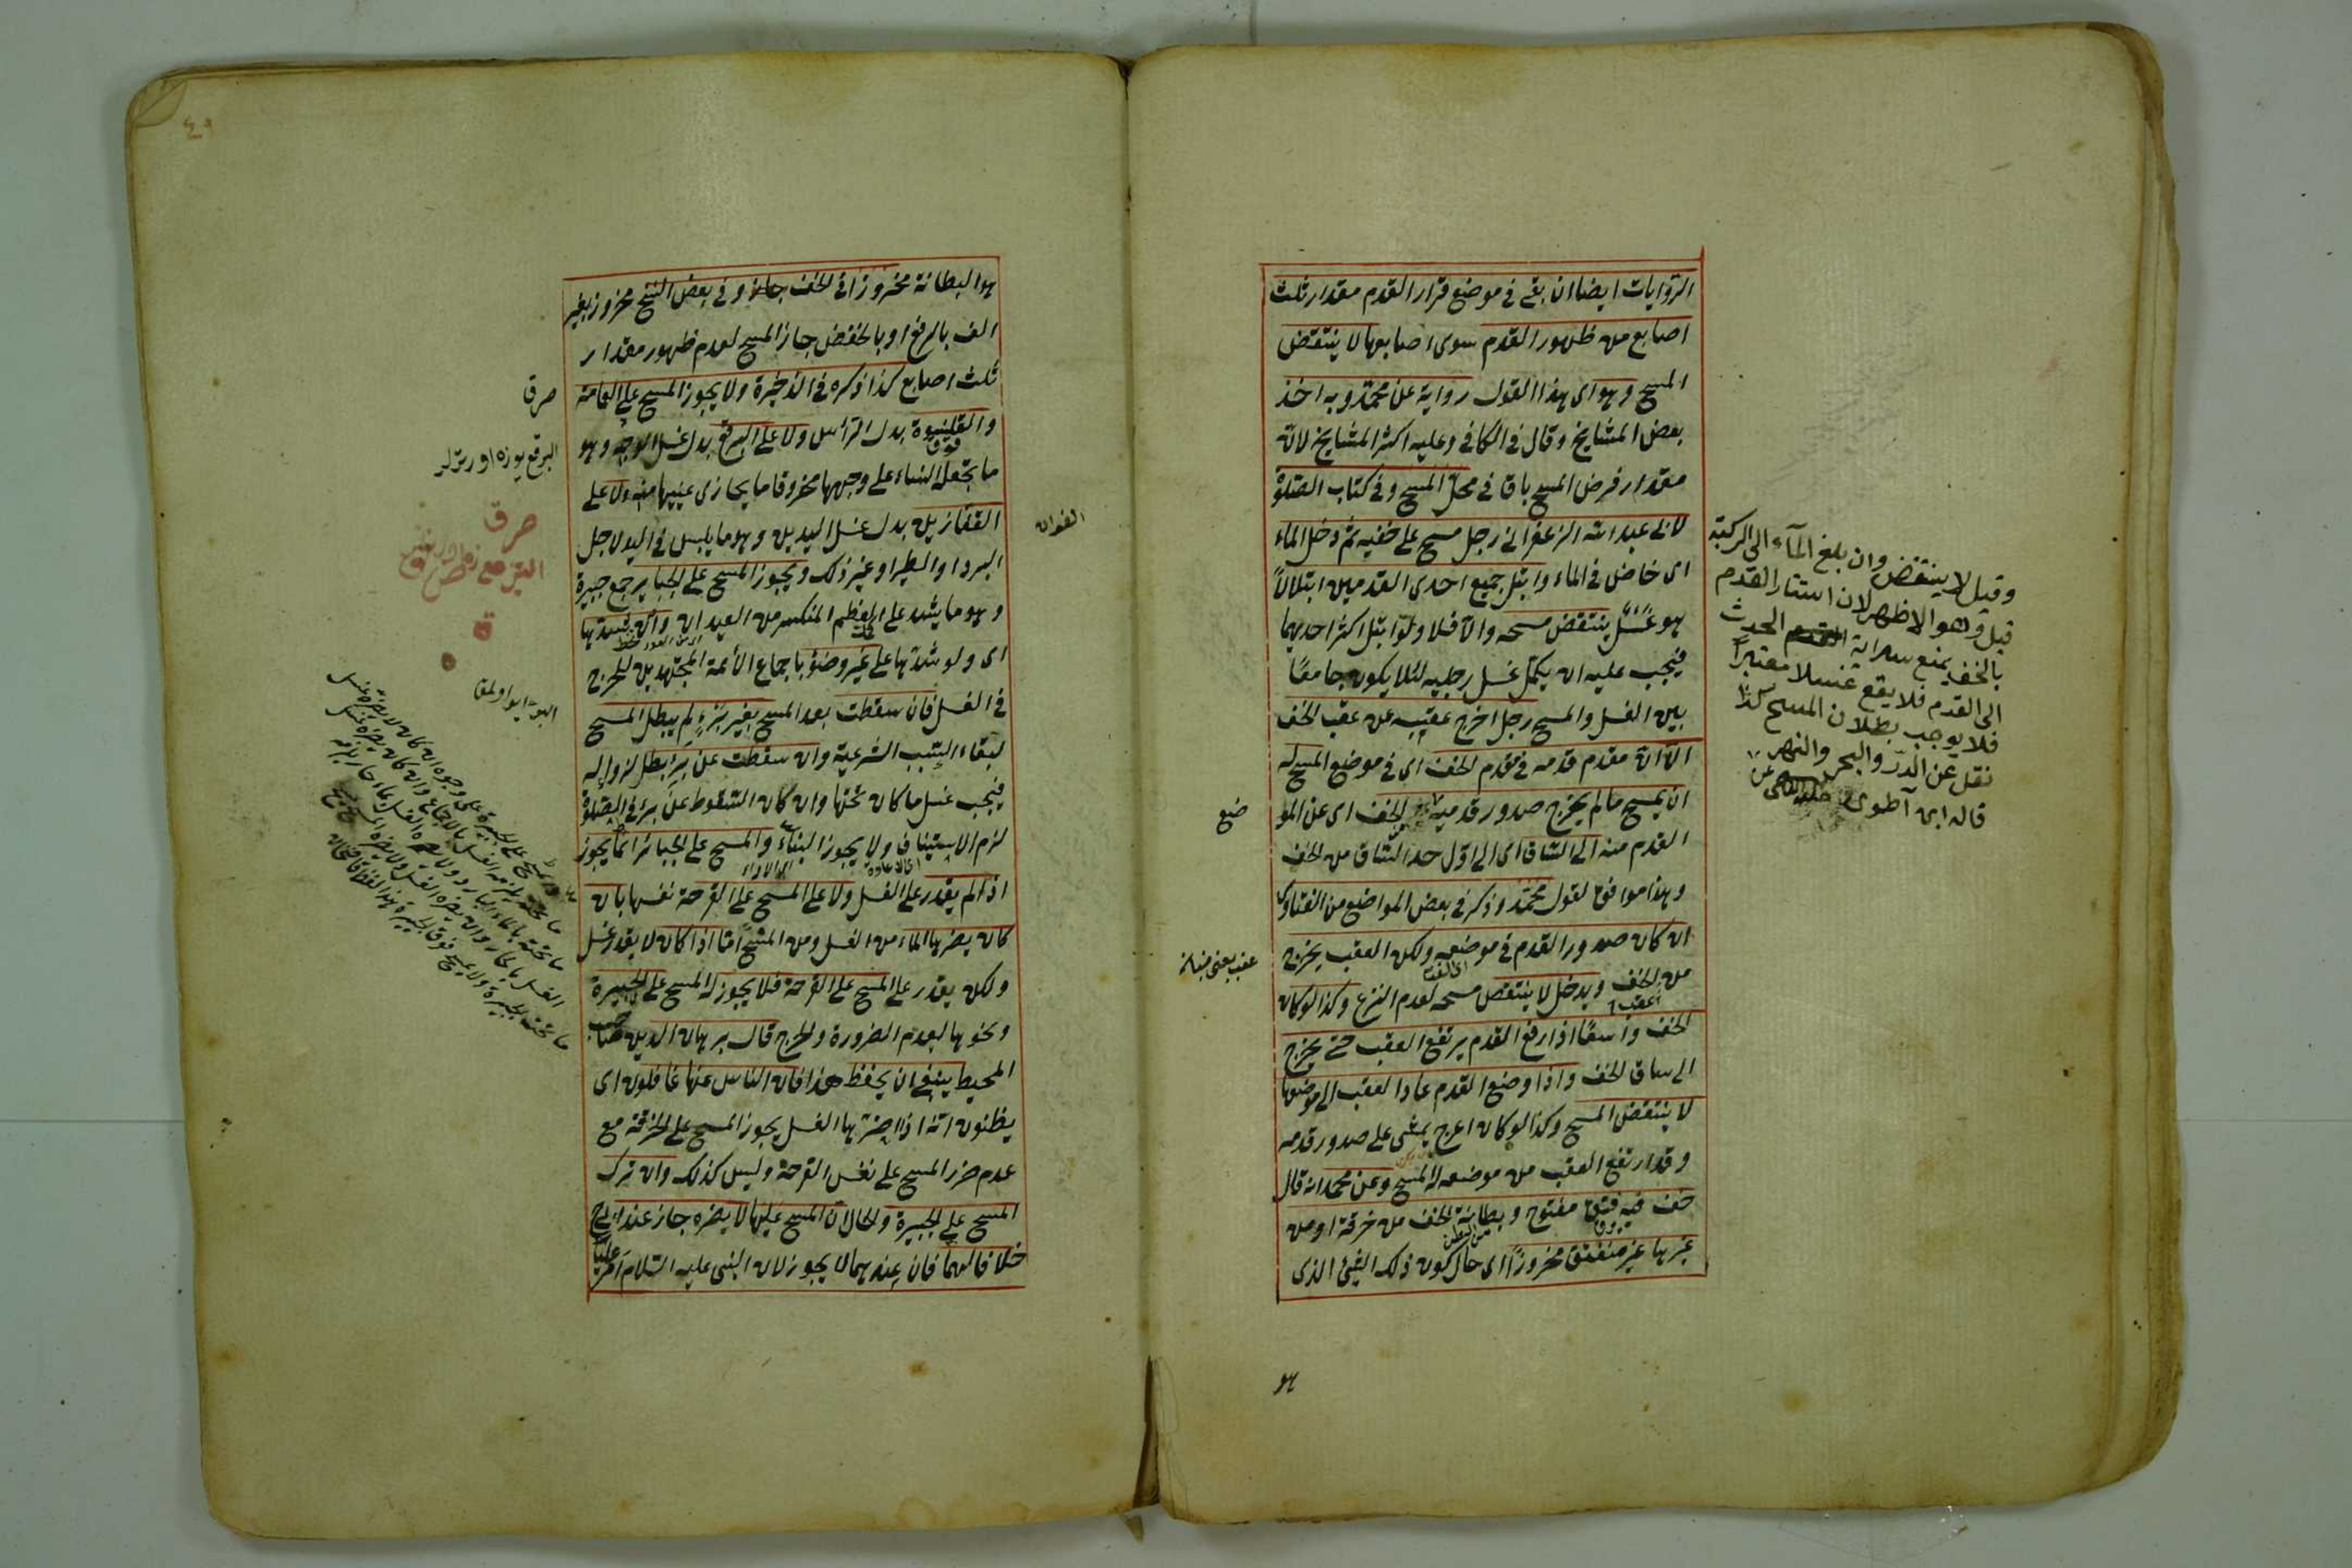 الروايات ايضا ان بقى فى موضع قرار القدم مقدار ثلث
اصابع من ظهور القدم سوى اصابعها لا ينتقض
المسح وهو اى هذا القول رواية عن محمد وبه اخذ
بعض المشايخ وقال فى الكافى وعليه اكثر المشايخ لانه
مقدار فرض المسح باق فى محل المسح وفى كتاب الصلوة
لابى عبد الله الزعفرانى رجل مسح على خفيه ثم دخل الماء
اى خاض فى الماء وابتل جميع احدى القدمين ابتلالاً
هو غسل ينتقض مسحه والا فلا ولو ابتل اكثر احديهما
فيجب عليه ان يكمل غسل رجليه لئلا يكون جامعًا
بين الغسل والمسح رجل اخرج عقيبه عن عقب الخف
الا ان مقدم قدمه فى مقدم الخف اى فى موضع المسح له
ان يمسح مالم يخرج صدور قدميه الخف اى عن المو
القدم منه الى الساق اى الى اول حد الساق من الخف
وهذا موافق لقول محمد وذكر فى بعض المواضع من الفتاوى
ان كان صدور القدم فى موضعه ولكن العقب يخرج
من الخف ويدخل لا ينتقض مسحه لعدم النزع وكذا لو كان
الخف واسعًا اذا رفع القدم يرتفع العقب حتى يخرج
الى ساق الخف واذا وضع القدم عاد العقب الى موضعها
لا ينتقض المسح وكذا لو كان اعرج يمشى على صدور قدمه
وقد ارتفع العقب من موضعه له المسح وعن محمد انه قال
خف فيه فتق مفتوح وبطانة الخف من خرقة او من
غيرها غير منفتق مخروزًا اى حال كون ذلك الشئ الذى
هو
وقيل لا ينتقض وان بلغ الماء الى الركبة
قيل وهو الاظهر لان استتار القدم
بالخف يمنع سراية الحدث
الى القدم فلا يقع غسلا معتبراً
فلا يوجب بطلان المسح كذا
نقل عن الدرر والبحر والنهر
قاله ابن آطوى
ضع
هو البطانة مخروزا فى الخف جاز وفى بعض النسخ مخروز بغير
الف بالرفع او بالخفض جاز المسح لعدم ظهور مقدار
ثلث اصابع كذا ذكره فى الذخيرة ولا يجوز المسح على العمامة
والقلنسوة بدل الرأس ولا على البرقع بدل غسل الوجه وهو
ما تجعل النساء على وجهها مخروقا ما يحاذى عينيها منه ولا على
القفازين بدل غسل اليدين وهو ما يلبس فى اليد لاجل
البرد او الطير او غير ذلك ويجوز المسح على الجبائر جمع جبيرة
وهو ما يشد على العظم المنكسر من العيدان وان شدها
اى ولو شدها على غير وضؤ باجماع الأئمة المجتهدين للحرج
فى الغسل فان سقطت بعد المسح بغير برء لم يبطل المسح
لبقاء السبب الشرعية وان سقطت عن برء بطل لزواله
فيجب غسل ما كان تحتها وان كان السقوط عن برء فى الصلوة
لزم الاستيناف ولا يجوز البناء والمسح على الجبائر انما يجوز
اذا لم يقدر على الغسل ولا على المسح على القرحة نفسها بان
كان يضرها الماء من الغسل ومن المسح امّا اذا كان لا يقدر غسل
ولكن يقدر على المسح على القرحة فلا يجوز له المسح على الجبيرة
ونحوها لعدم الضرورة والحرج قال برهان الدين صاحب
المحيط ينبغى ان يحفظ هذا فان الناس عنها غافلون اى
يظنون انه اذا اضرّ بها الغسل يجوز المسح على الخرقة مع
عدم ضرر المسح على نفس القرحة وليس كذلك وان ترك
المسح على الجبيرة والحال ان المسح عليها لا يضره جاز عند
خلافا لهما فان عندهما لا يجوز لان النبى عليه السلام امر عليا